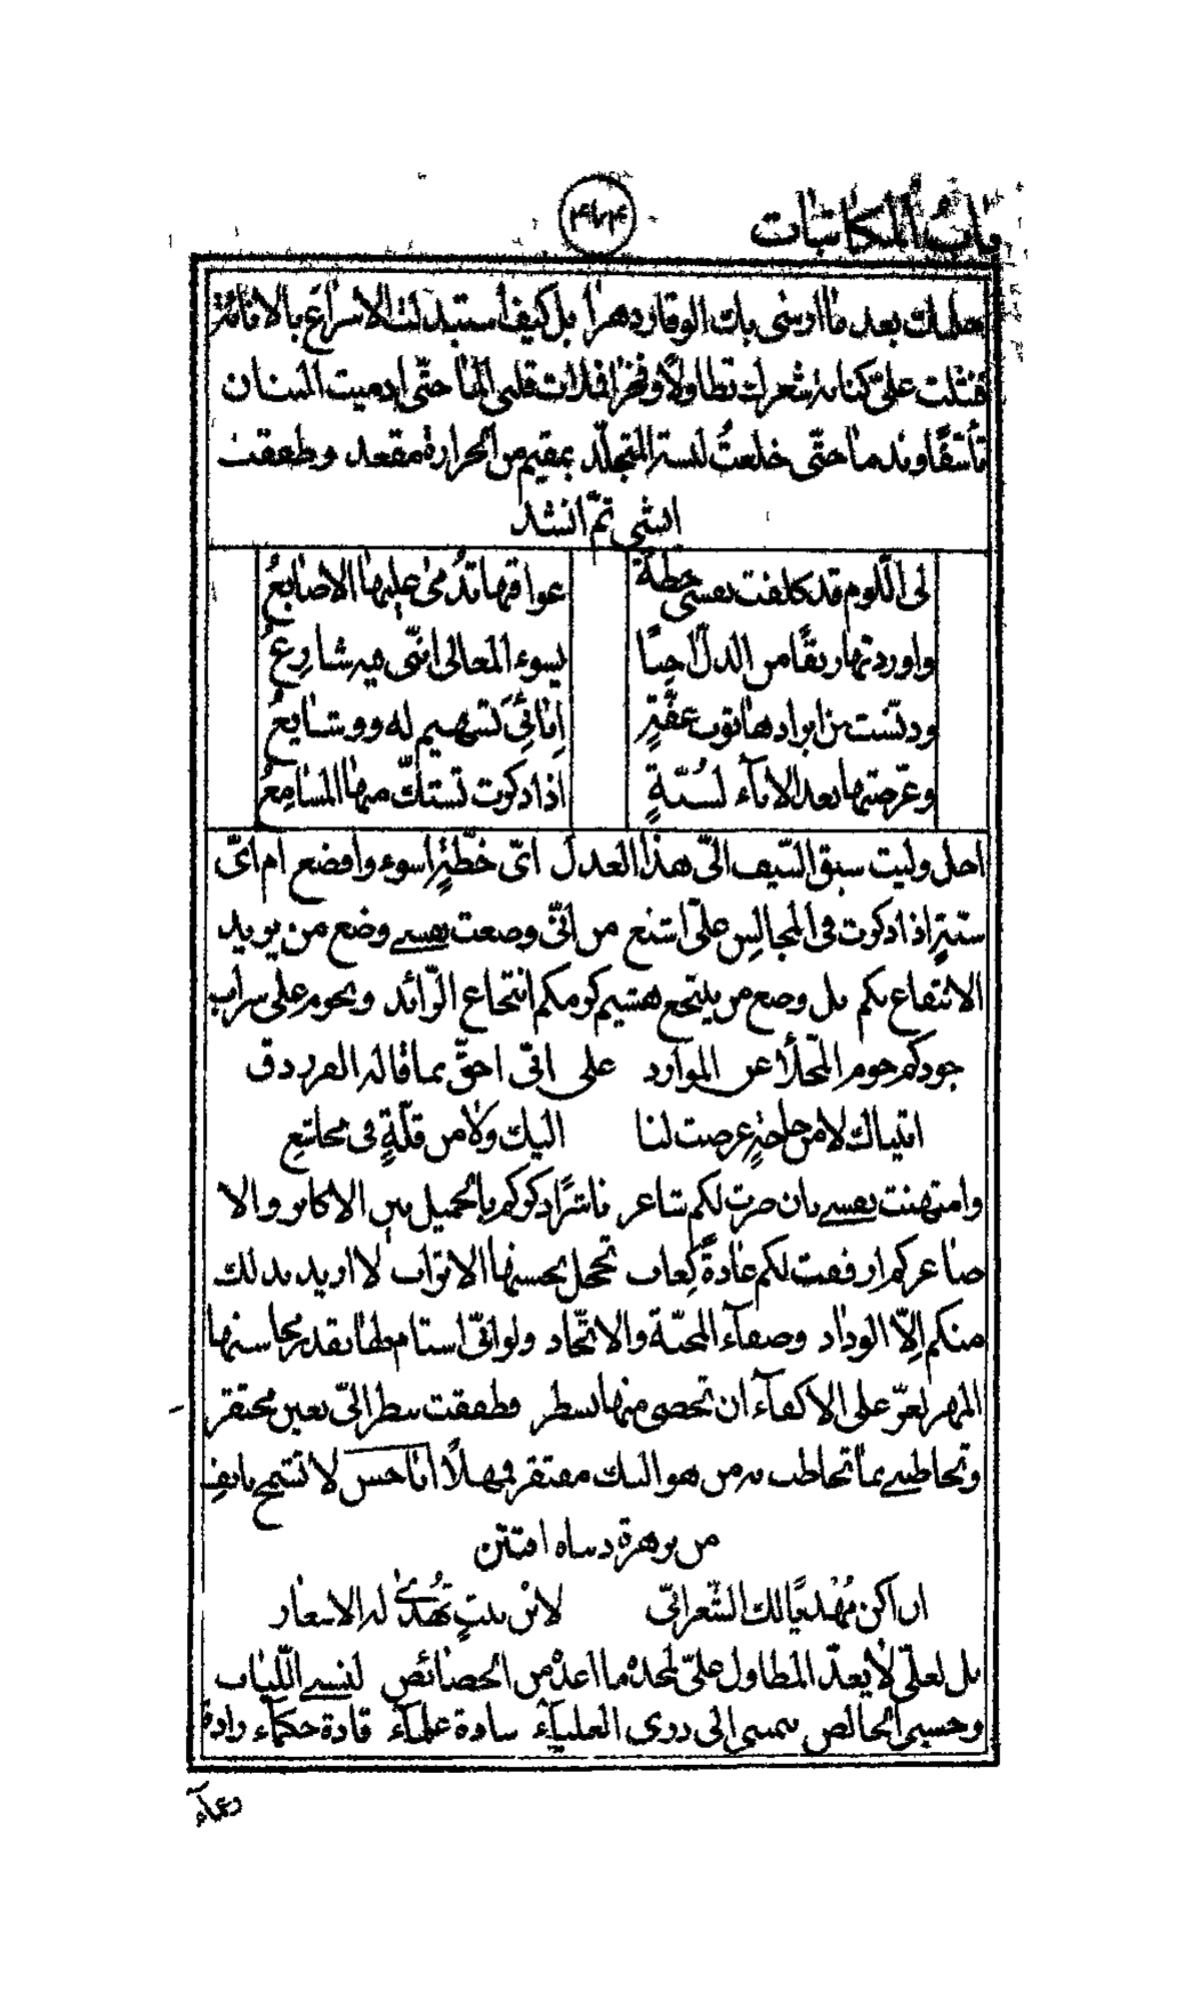 باب المكاتبات
بعد ما ارسى بك الوقار دهرا بل كيف استبدلت الاسراع بالاناة
فنثلت على كنانة شعرك تطاولا وفخرا قلبى حتى ادميت البنان
تأسّفًا وندما حتّى خلعتُ لبسة التجلّد بمقيم من الحرارة مقعد وطفقت
ثمّ انشد
لى اللّوم قد كلفت نفسى خطة
عواقبها تدمى عليها الاصابعُ
واوردتها رنقًا من الذل اجنًا
يسوء المعالى انّنى فيه شارعُ
ودنّست من ابرادها ثوب عفّةٍ
له ووشايعُ
وعرّضتها بعد الاباء لسُبّةٍ
اذا ذكرت تستكّ منها المسامعُ
اجل وليت سبق السّيف الىّ هذا العذل اىّ خطّةٍ اسوء وافضع ام اىّ
سبّةٍ اذا ذكرت فى المجالس علىّ اشنع من انّى وضعت نفسى وضع من يريد
الانتفاع بكم بل وضع من ينتجع هشيم كرمكم انتجاع الرّائد ويحوم على سراب
جودكم حوم المحلّأ عن الموارد على انّى احقّ بما قاله الفرزدق
اتيناك لا من حاجةٍ عرضت لنا
اليك ولا من قلّةٍ فى مجاشعِ
وامتهنت نفسى بان صرت لكم شاعر ناشرًا ذكركم بالجميل بين الاكابر والا
صاغر كم ار فعت لكم غادةً كعاب تخجل بحسنها الاتراب لا اريد بذلك
منكم إلّا الوداد وصفاء المحبّة والاتّحاد ولو انّى استام خطابقدر محاسنها
المهر لعزّ على الاكفاء ان تحصى منها بسطر وطفقت تنظر الىّ بعين محتقر
وتخاطبنى بما تخاطب به من هو اليك مفتقر فمهلًا اباحسن لا تشمخ بانف
من زهرة دنياه افتتن
ان اكن مُهديًا لك الشّعر انّى
لابن بيتٍ تُهدى له الاشعار
بل لعلّى لا يعدّ التطاول علىّ لمجده ما اعدّ من الخصائص لنفسى اللّباب
وحسبى الخالص ينمى الى ذوى العلياء سادة علماء قادة حكماء رادة